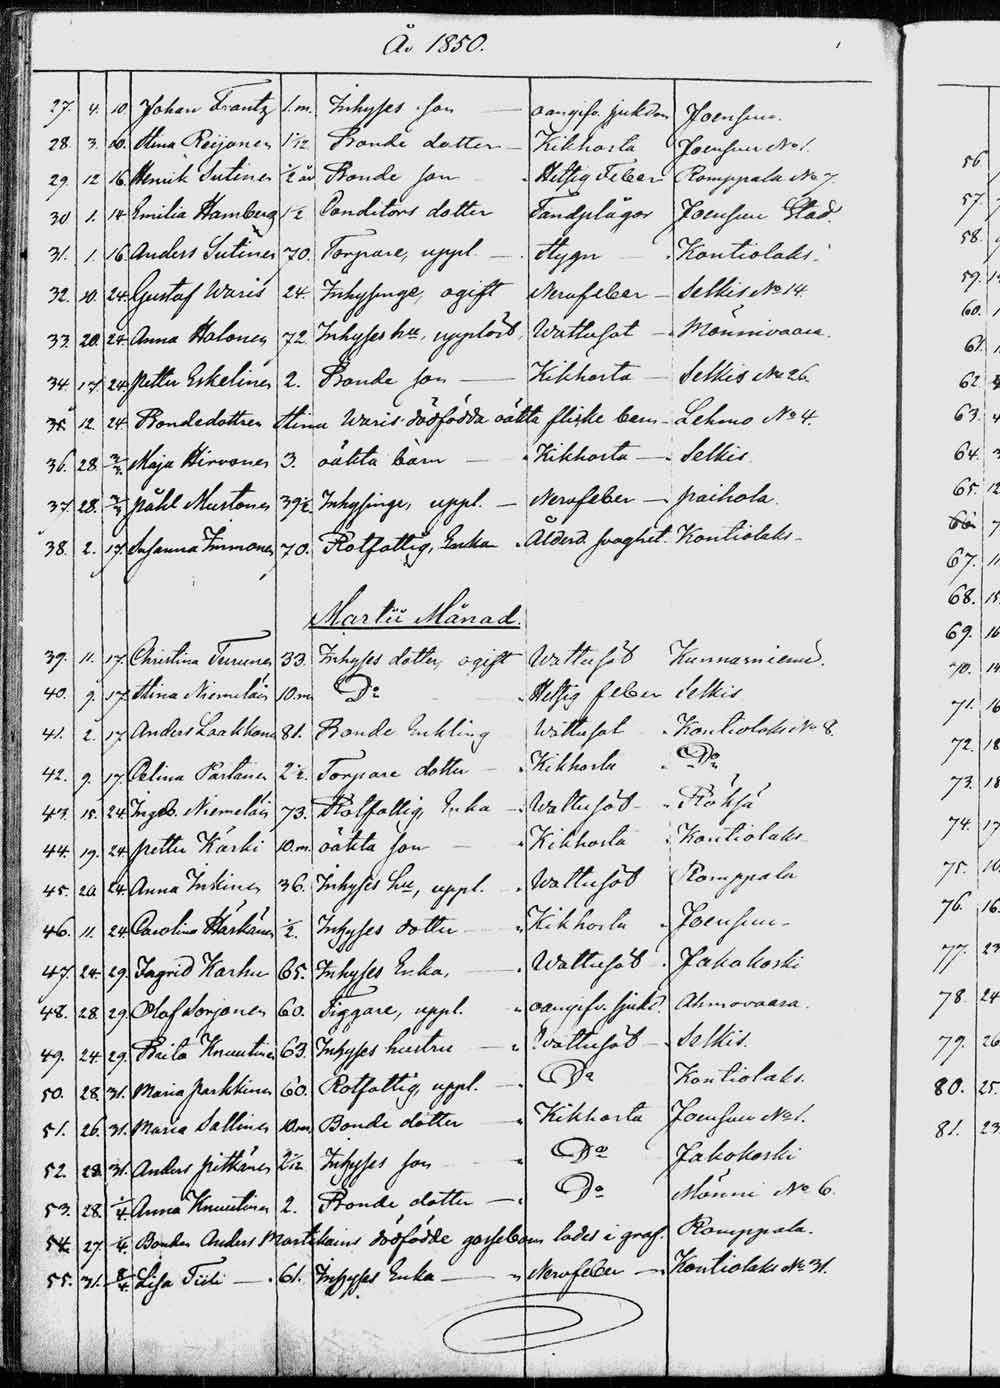 År 1850.
27. 4. 10. Johan Frantz 1.m. Inhyses son oangifv. sjukdom Joensuu.
28. 3. 10. Stina Reijonen 1 1/12 Bonde dotter Kikhosta Joensuu No 1.
29. 12 16 Henrik Sutinen 1/2 år Bonde son Heftig Feber Romppala No 7.
30 1. 14 Emilia Hamberg 1 1/2 Conditors dotter Tandplågor Joensuu Stad.
31. 1. 16 Anders Sutinen 70. Torpare, uppl. Stygn Kontiolaks.
32. 10. 24. Gustaf Waris 24. Inhysinge, ogift Nervfeber Selkis No 14.
33. 20. 24. Anna Halonen 72 Inhyses hu, upplöst, Wattusot Mönnivaara.
34. 17 24. Petter Eskelinen 2. Bonde son Kikhosta Selkis No 26.
35. 12 24 Bondedottren Stina Waris dödfödda oäkta flicke barn Lehmo No 4.
36. 28. 3/3. Maja Hirvonen 3. oäkta barn Kikhosta Selkis.
37. 28. 3/3 Påhl Mustonen 39 1/2. Inhysinge, uppl. Nervfeber Paihola.
38. 2. 17. Susanna Immonen 70. Rotfattig, Enka Ålderd. svaghet. Kontiolaks
Martii Månad.
39. 11. 17. Christina Turunen 33. Inhyses dotter, ogift Wattusot Kunnasniemi.
40. 9. 17. Stina Niemeläin 10.m Do Heftig feber Selkis
41. 2. 17. Anders Laakkonen 81. Bonde Enkling Wattusot Kontiolaks No 8.
42. 9. 17. Celina Partanen 2 1/2. Torpare dotter Kikhosta Do
43. 15. 24. Ingeb. Niemeläin 73. Rotfattig, Enka Wattusot
44. 19. 24. Petter Kärki 10.m. oäkta son Kikhosta Kontiolaks
45. 20. 24. Anna Inkinen 36. Inhyses hu, uppl. Wattusot Romppala
46. 11. 24. Carolina Härkänen 1/2. Inhyses dotter Kikhosta Joensuu
47. 24. 29. Ingrid Karhu 65. Inhyses Enka, Wattusot Jakokoski
48. 28. 29. Olof Sorjonen 60. Tiggare, uppl. oangifv. sjukd. Ahmovaara.
49. 24. 29. Beata Knuutinen 63. Inhyses hustru Wattusot Selkis.
50. 28. 31. Maria Parkkinen 60. Rotfattig, uppl. Do Kontiolaks.
51. 26. 31. Maria Sallinen 10.m Bonde dotter Kikhosta Joensuu No 1.
52. 28. 31. Anders Pitkänen 2 1/12 Inhyses son Do Jakokoski
53. 28. 1/4. Anna Knuutinen 2. Bonde dotter Do Mönni No 6.
54. 27 1/4. Bonden Anders Martikains dödfödde gossebarn lades i graf. Romppala.
55. 31. 2/4. Lisa Tiili 61. Inhyses Enka Nervfeber Kontiolaks No 31.
56
57. 7
58.
59. 14
60. 1
61. 1
62
63. 4
64. 3
65. 12
66. 7
67. 11
68. 15
69. 16
70. 14
71. 16
72. 18
73. 18
74. 17
75. 10
76. 16.
77. 23
78. 24
79. 26
80. 25.
81. 23